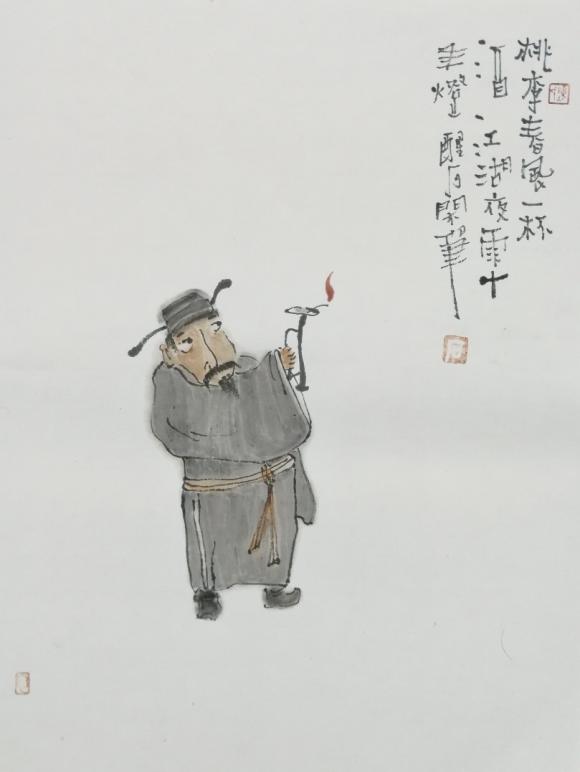 桃李春風一杯
酒江湖夜雨十
年燈 醒石閑筆